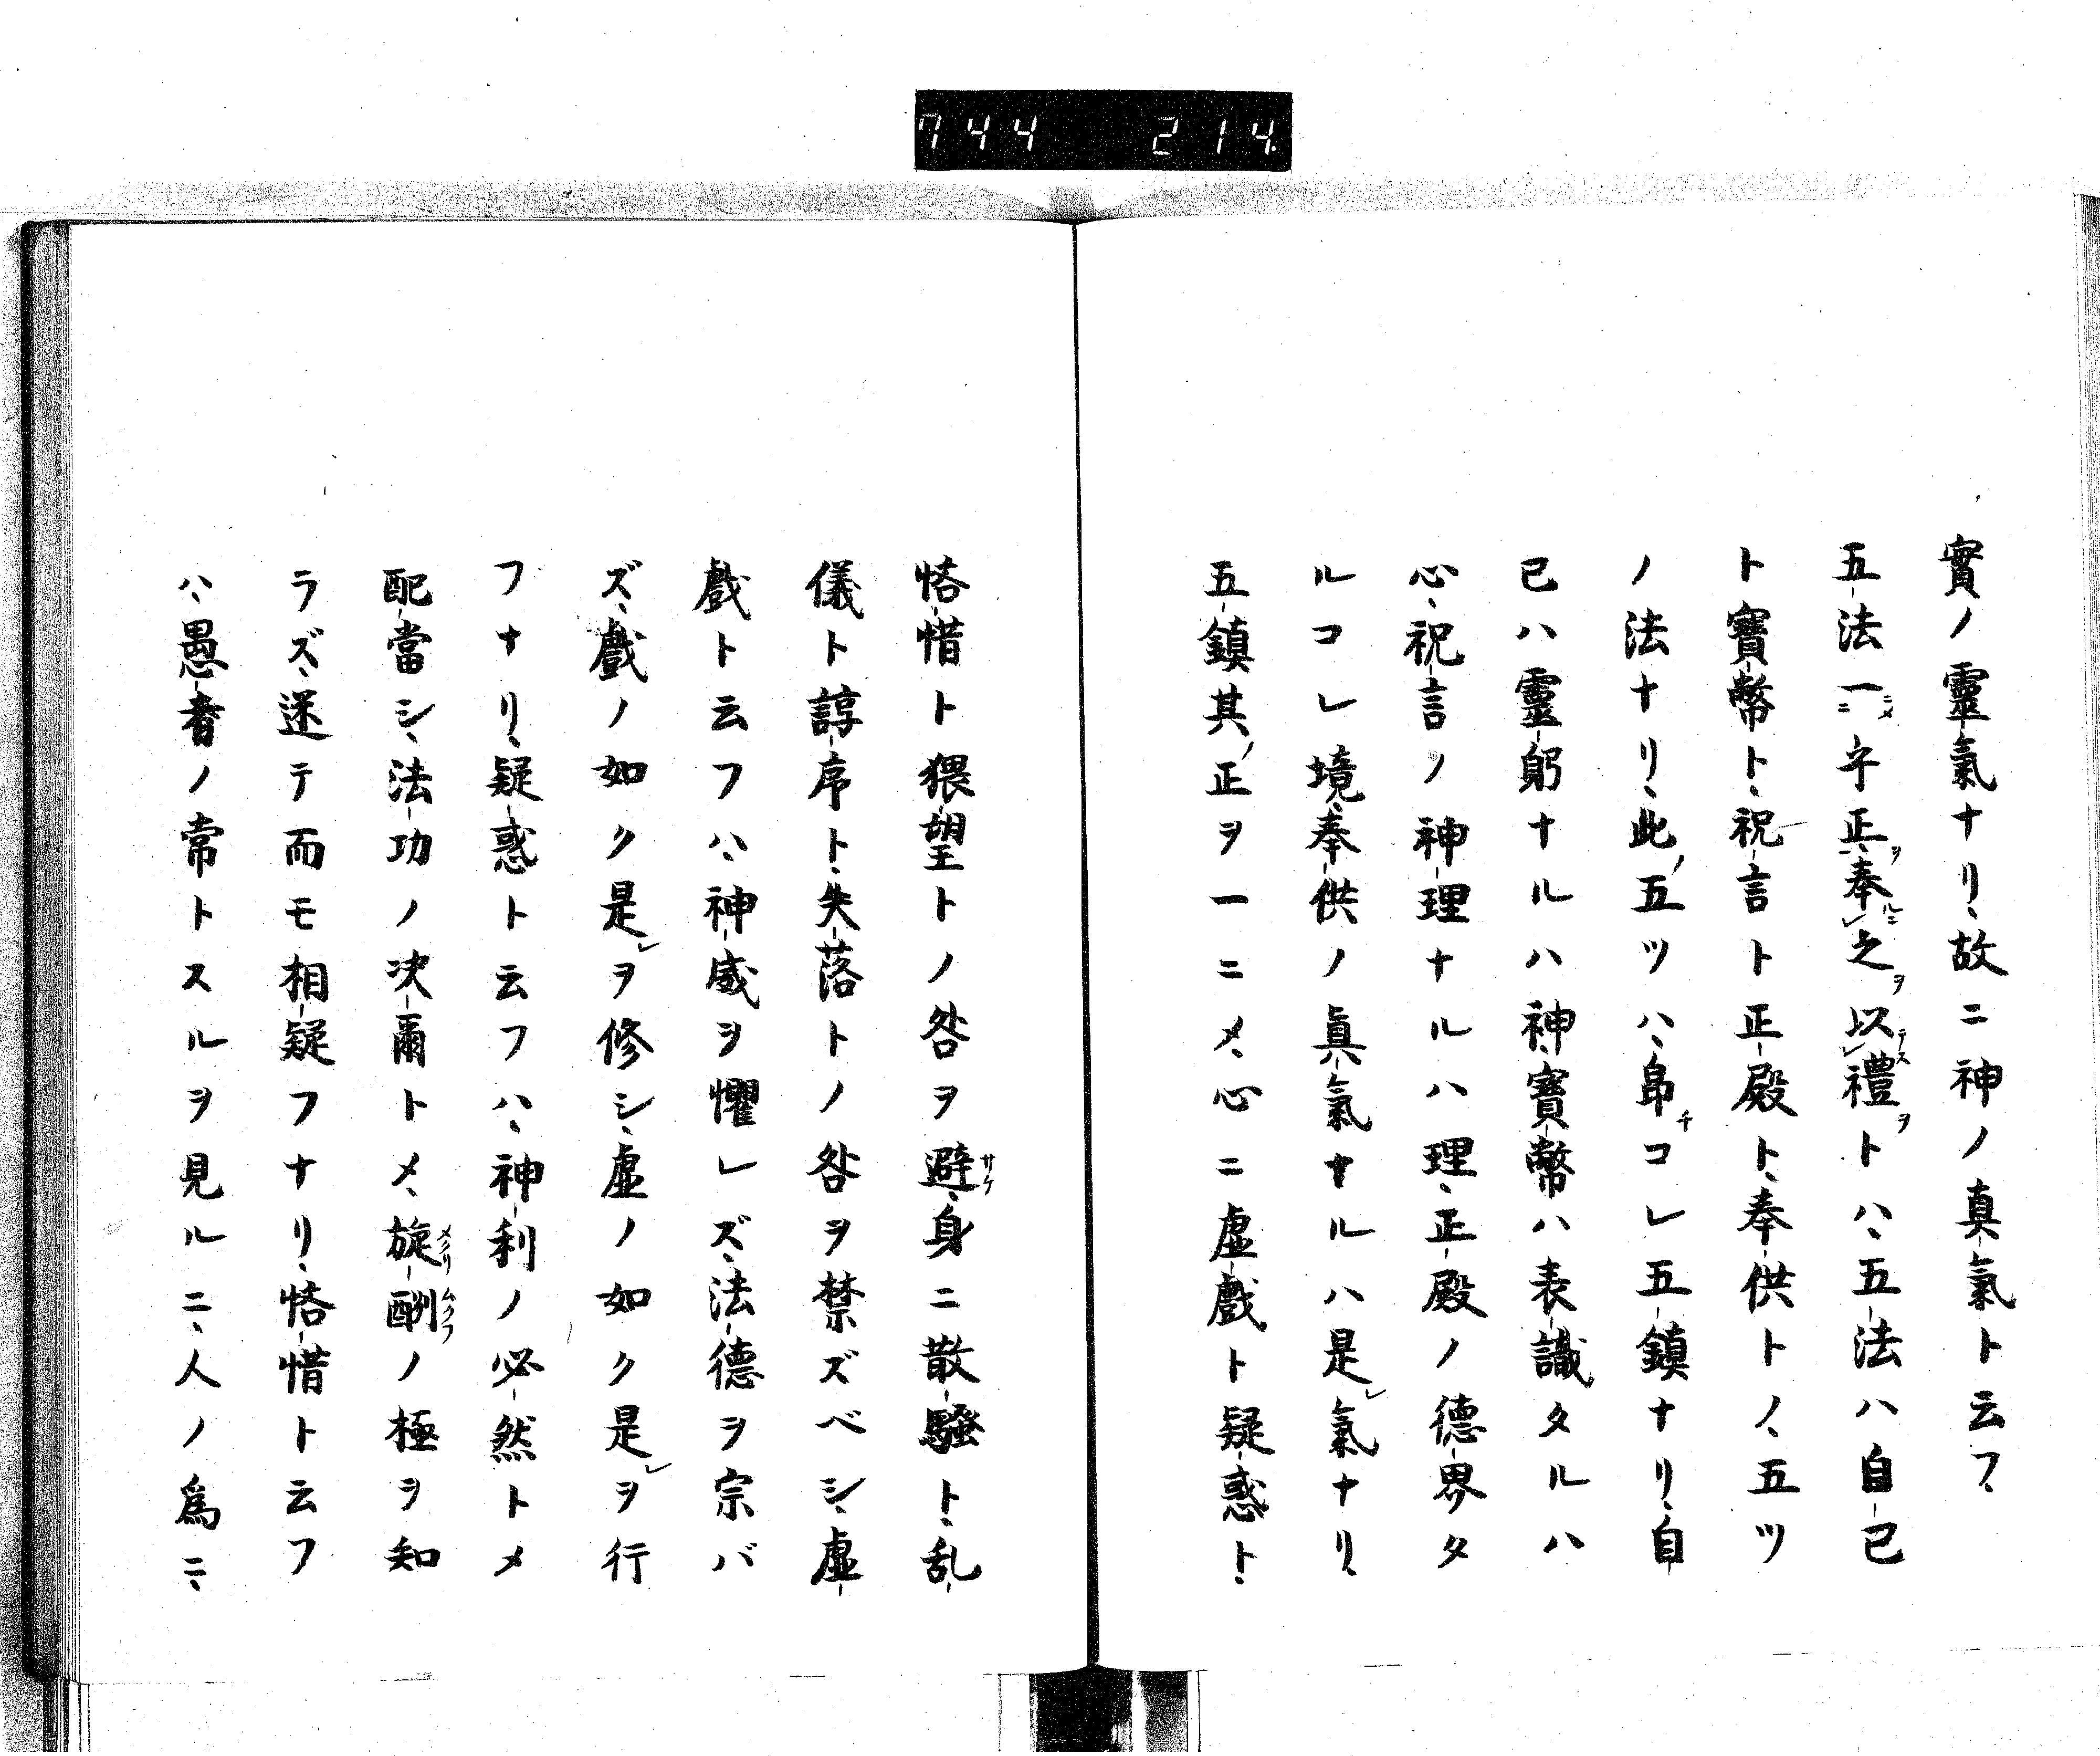 744 214
實ノ靈氣ナリ、故ニ神ノ真氣ト云フ、
五法一ニニメ守正ヲ、奉ルニ之ヲ以テス禮ヲトハ、五法ハ自己
ト寶幣ト、祝言ト正殿ト、奉供トノ、五ツ
ノ法ナリ、此ノ五ツハ、皍チコレ五鎮ナリ、自
己ハ靈躬ナルハ神、寶幣ハ表識タルハ
心、祝言ノ神理ナルハ理、正殿ノ德界タ
ルコレ境、奉供ノ真氣ナルハ是レ氣ナリ、
五鎮其ノ正ヲ一ニメ、心ニ虚戲ト疑惑ト、
悋惜ト猥望トノ咎ヲ避サケ、身ニ散騷ト、乱
儀ト諄序ト、失落トノ咎ヲ禁ズベシ、虚
戲ト云フハ、神威ヲ懼レズ、法德ヲ宗バ
ズ、戲ノ如ク是レヲ修シ、虚ノ如ク是レヲ行
フナリ、疑惑ト云フハ、神利ノ必然トメ
配當シ、法功ノ决爾トメ、旋メクリ酬ムクフノ極ヲ知
ラズ、迷テ而モ相疑フナリ、悋惜ト云フ
ハ、愚者ノ常トスルヲ見ルニ、人ノ爲ニ、